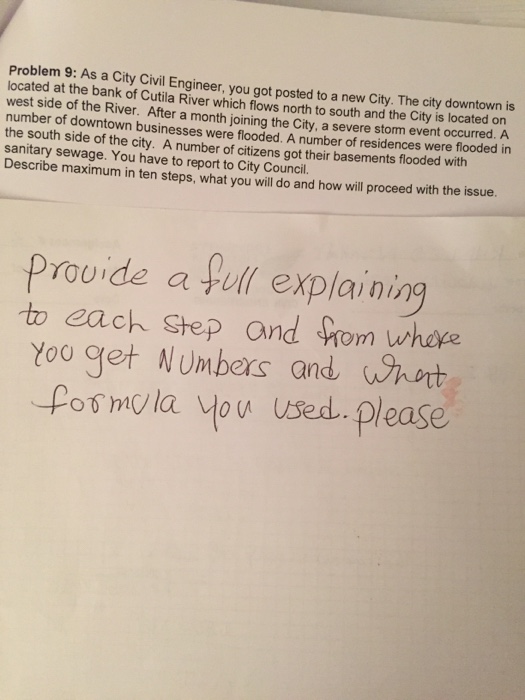 Problem 9: As a City Civil Engineer, you got posted to a new City. The city downtown is
located at the bank of Cutila River which flows north to south and the City is located on
west side of the River. After a month joining the City, a severe storm event occurred. A
number of downtown businesses were flooded. A number of residences were flooded in
the south side of the city. A number of citizens got their basements flooded with
sanitary sewage. You have to report to City Council.
Describe maximum in ten steps, what you will do and how will proceed with the issue.
Provide a full explaining
to each step and from where
you get Numbers and what
formula you used. please